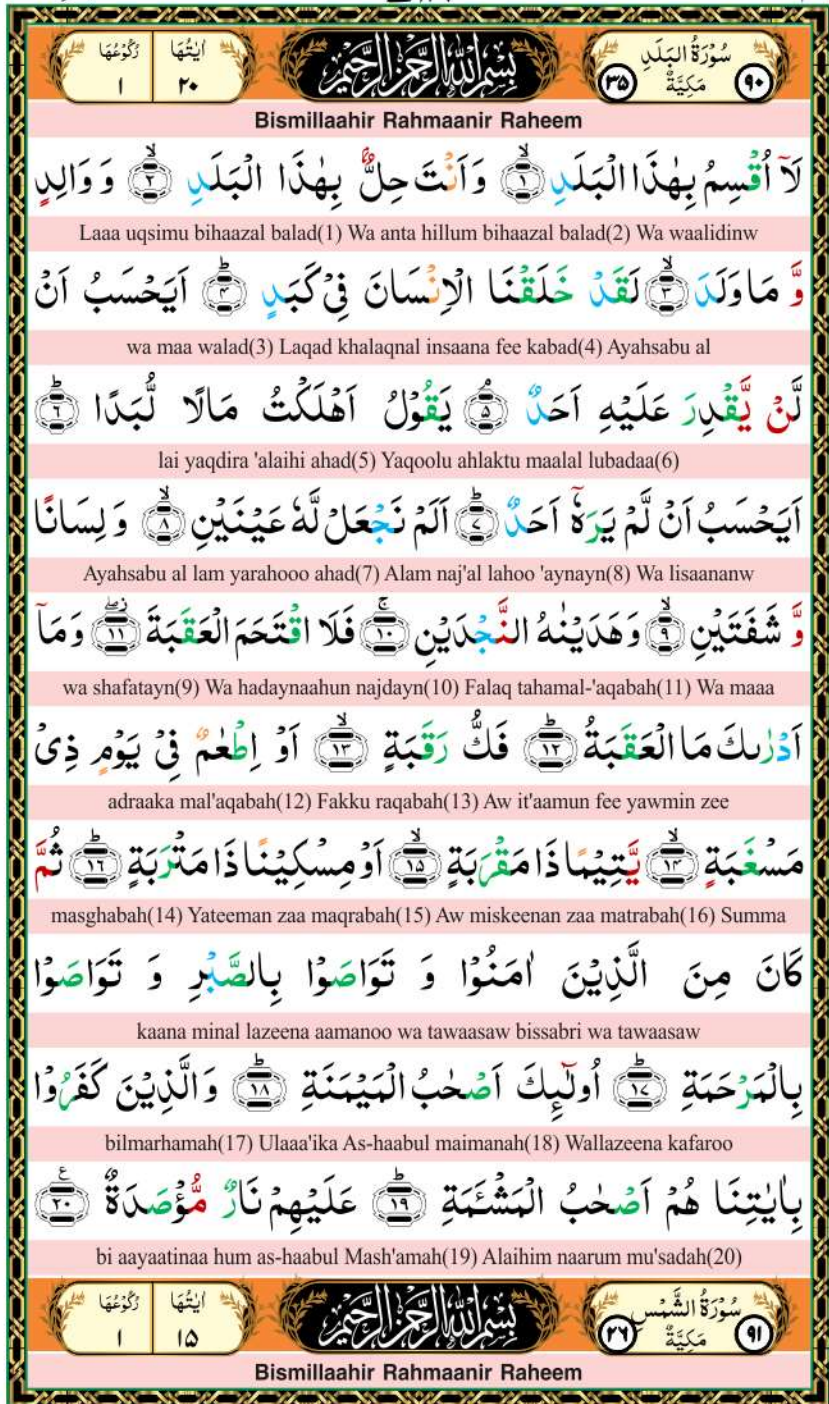 سُوْرَةُ الْبَلَدِ مَكِّيَّةٌ ٩٠ ٣٥ بِسْمِ اللّٰهِ الرَّحْمٰنِ الرَّحِيْمِ اٰيٰتُهَا ٢٠ رُكُوْعُهَا ١
Bismillaahir Rahmaanir Raheem
لَآ اُقْسِمُ بِهٰذَا الْبَلَدِ ۙ﴿١﴾ وَاَنْتَ حِلٌّۢ بِهٰذَا الْبَلَدِ ۙ﴿٢﴾ وَ وَالِدٍ
Laaa uqsimu bihaazal balad(1) Wa anta hillum bihaazal balad(2) Wa waalidinw
وَّ مَا وَلَدَ ۙ﴿٣﴾ لَقَدْ خَلَقْنَا الْاِنْسَانَ فِيْ كَبَدٍ ؕ﴿٤﴾ اَيَحْسَبُ اَنْ
wa maa walad(3) Laqad khalaqnal insaana fee kabad(4) Ayahsabu al
لَّنْ يَّقْدِرَ عَلَيْهِ اَحَدٌ ۘ﴿٥﴾ يَقُوْلُ اَهْلَكْتُ مَالًا لُّبَدًا ؕ﴿٦﴾
lai yaqdira 'alaihi ahad(5) Yaqoolu ahlaktu maalal lubadaa(6)
اَيَحْسَبُ اَنْ لَّمْ يَرَهٗٓ اَحَدٌ ؕ﴿٧﴾ اَلَمْ نَجْعَلْ لَّهٗ عَيْنَيْنِ ۙ﴿٨﴾ وَ لِسَانًا
Ayahsabu al lam yarahooo ahad(7) Alam naj'al lahoo 'aynayn(8) Wa lisaananw
وَّ شَفَتَيْنِ ۙ﴿٩﴾ وَهَدَيْنٰهُ النَّجْدَيْنِ ۚ﴿١٠﴾ فَلَا اقْتَحَمَ الْعَقَبَةَ ۖ﴿١١﴾ وَمَآ
wa shafatayn(9) Wa hadaynaahun najdayn(10) Falaq tahamal-'aqabah(11) Wa maaa
اَدْرٰىكَ مَا الْعَقَبَةُ ؕ﴿١٢﴾ فَكُّ رَقَبَةٍ ۙ﴿١٣﴾ اَوْ اِطْعٰمٌ فِيْ يَوْمٍ ذِيْ
adraaka mal'aqabah(12) Fakku raqabah(13) Aw it'aamun fee yawmin zee
مَسْغَبَةٍ ۙ﴿١٤﴾ يَّتِيْمًا ذَا مَقْرَبَةٍ ۙ﴿١٥﴾ اَوْ مِسْكِيْنًا ذَا مَتْرَبَةٍ ؕ﴿١٦﴾ ثُمَّ
masghabah(14) Yateeman zaa maqrabah(15) Aw miskeenan zaa matrabah(16) Summa
كَانَ مِنَ الَّذِيْنَ اٰمَنُوْا وَ تَوَاصَوْا بِالصَّبْرِ وَ تَوَاصَوْا
kaana minal lazeena aamanoo wa tawaasaw bissabri wa tawaasaw
بِالْمَرْحَمَةِ ؕ﴿١٧﴾ اُولٰٓئِكَ اَصْحٰبُ الْمَيْمَنَةِ ؕ﴿١٨﴾ وَالَّذِيْنَ كَفَرُوْا
bilmarhamah(17) Ulaaa'ika As-haabul maimanah(18) Wallazeena kafaroo
بِاٰيٰتِنَا هُمْ اَصْحٰبُ الْمَشْئَمَةِ ؕ﴿١٩﴾ عَلَيْهِمْ نَارٌ مُّؤْصَدَةٌ ۠﴿٢٠﴾
bi aayaatinaa hum as-haabul Mash'amah(19) Alaihim naarum mu'sadah(20)
سُوْرَةُ الشَّمْسِ مَكِّيَّةٌ ٩١ ٢٦ بِسْمِ اللّٰهِ الرَّحْمٰنِ الرَّحِيْمِ اٰيٰتُهَا ١٥ رُكُوْعُهَا ١
Bismillaahir Rahmaanir Raheem